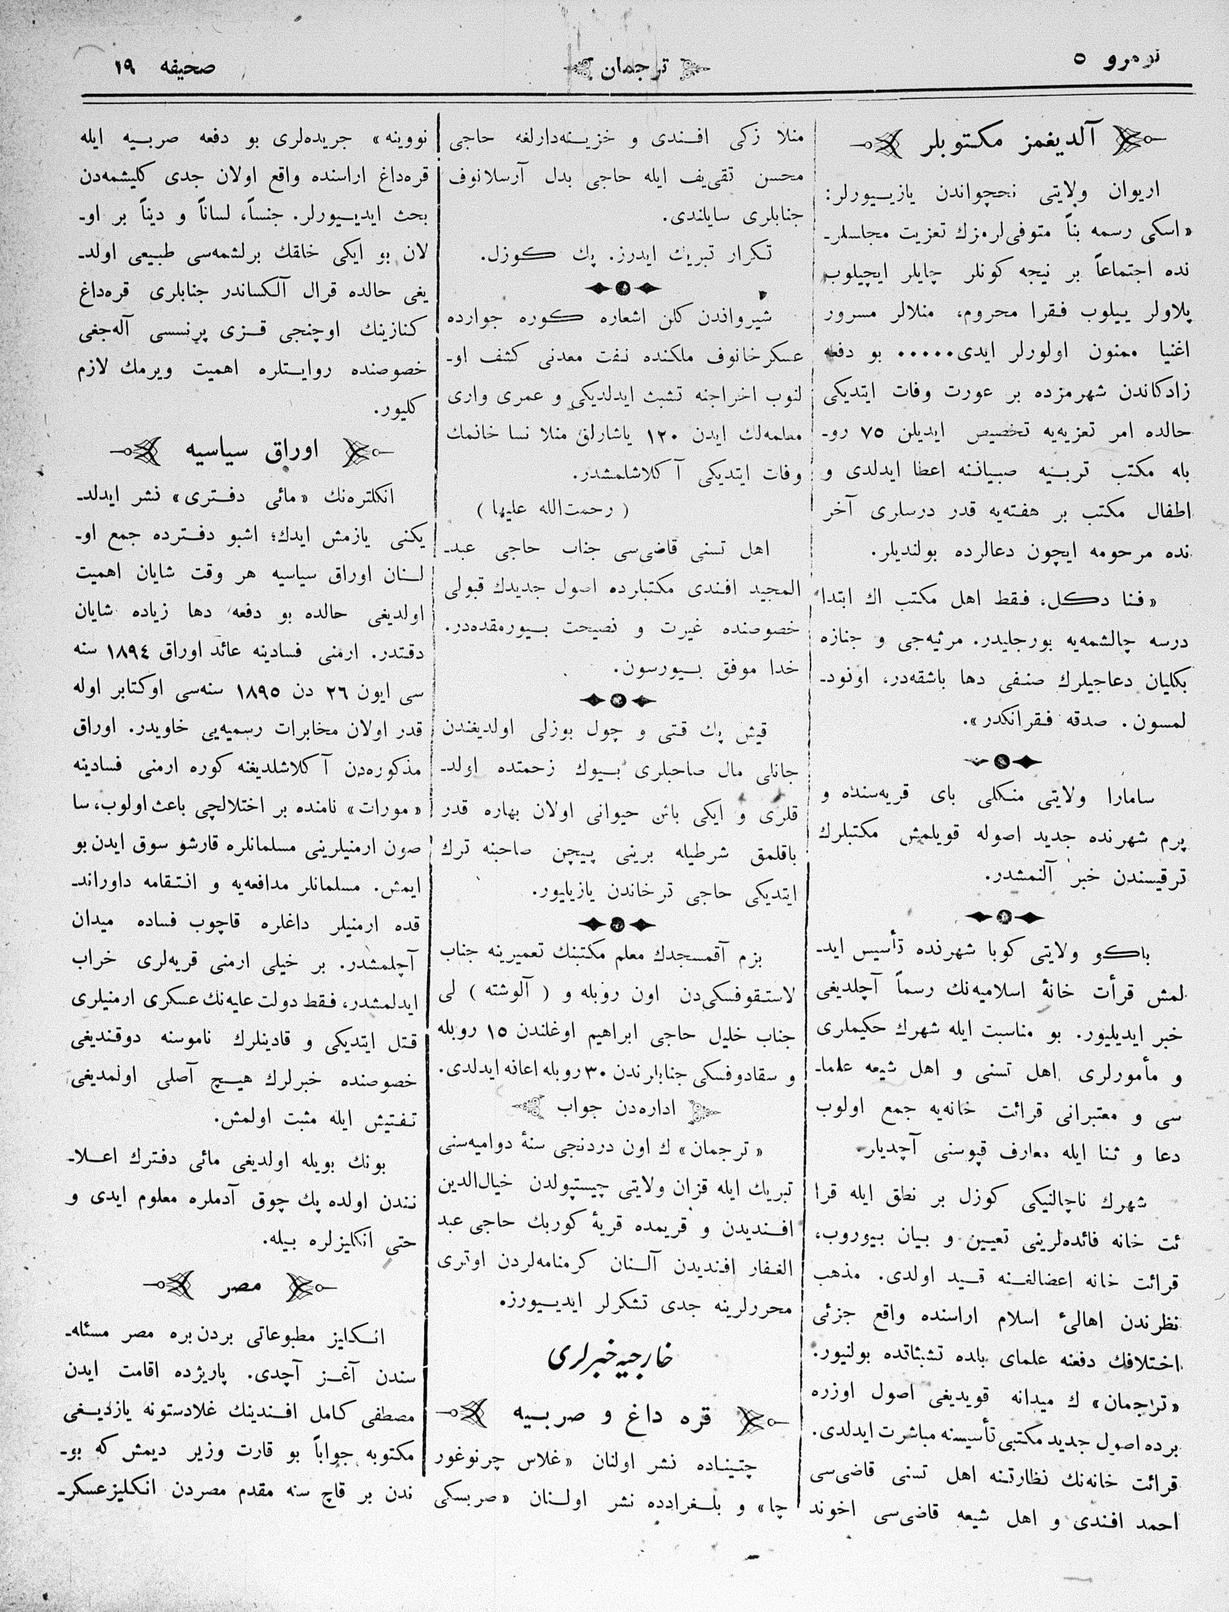 نومرو ٥
ترجمان
صحیفه ١٩
آلدیغمز مکتوبلر
اریوان ولایتی نخچواندن یازییورلر:
«اسکی رسمه بناً متوفی‌لرمزك تعزیت مجلسلر-
نده اجتماعاً بر نیجه کونلر چایلر ایچیلوب
پلاولر ییلوب فقرا محروم، منلالر مسرور
اغنیا ممنون اولورلر ایدی..... بو دفعه
زادکاندن شهرمزده بر عورت وفات ایتدیکی
حالده امر تعزیه‌یه تخصیص ایدیلن ٧٥ رو-
بله مکتب تربیه صبیاننه اعطا ایدلدی و
اطفال مکتب بر هفته‌یه قدر درسلری آخر
نده مرحومه ایچون دعالرده بولندیلر.
«فنا دکل، فقط اهل مکتب اك ابتدا
درسه چالشمه‌یه بورجلیدر. مرثیه‌جی و جنازه
بکلیان دعاجیلرك صنفی دها باشقه‌در، اونود-
لمسون. صدقه فقرانکدر».
سامارا ولایتی منکلی بای قریه‌سنده و
پرم شهرنده جدید اصوله قویلمش مکتبلرك
ترقیسندن خبر آلنمشدر.
باکو ولایتی کوبا شهرنده تأسیس اید-
لمش قرأت خانهٔ اسلامیه‌نك رسماً آچلدیغی
خبر ایدیلیور. بو مناسبت ایله شهرك حکیملری
و مأمورلری اهل تسنی و اهل شیعه علما-
سی و معتبرانی قرائت خانه‌یه جمع اولوب
دعا و ثنا ایله معارف قپوسنی آچدیلر.
شهرك ناچالنیکی کوزل بر نطق ایله قرا
ئت خانه فائده‌لرینی تعیین و بیان بیوروب،
قرائت خانه اعضالغنه قید اولدی. مذهب
نظرندن اهالیٔ اسلام اراسنده واقع جزئی
اختلافك دفعنه علمای بلده تشبثاتده بولنیور.
«ترجمان» ك میدانه قویدیغی اصول اوزره
برده اصول جدید مکتبی تأسیسنه مباشرت ایدلدی.
قرائت خانه‌نك نظارتنه اهل تسنی قاضی‌سی
احمد افندی و اهل شیعه قاضی‌سی اخوند
منلا زکی افندی و خزینه‌دارلغه حاجی
محسن تقی‌یف ایله حاجی بدل آرسلانوف
جنابلری سایلندی.
تکرار تبریك ایدرز. پك کوزل.
شیرواندن کلن اشعاره کوره جوارده
عسکرخانوف ملکنده نفت معدنی کشف او-
لنوب اخراجنه تشبث ایدلدیکی و عمری واری
معلمه‌لك ایدن ١٢٠ یاشارلق منلا نسا خانمك
وفات ایتدیکی آکلاشلمشدر.
(رحمت‌الله علیها)
اهل تسنی قاضی‌سی جناب حاجی عبد-
المجید افندی مکتبلرده اصول جدیدك قبولی
خصوصنده غیرت و نصیحت بیورمقده‌در.
خدا موفق بیورسون.
قیش پك قتی و چول بوزلی اولدیغندن
جانلی مال صاحبلری بیوك زحمتده اولد-
قلری و ایکی باش حیوانی اولان بهاره قدر
باقلمق شرطیله برینی پیچن صاحبنه ترك
ایتدیکی حاجی ترخاندن یازیلیور.
بزم آقمسجدك معلم مکتبنك تعمیرینه جناب
لاستقوفسکی‌دن اون روبله و (آلوشته) لی
جناب خلیل حاجی ابراهیم اوغلندن ١٥ روبله
و سقادوفسکی جنابلرندن ٣٠ روبله اعانه ایدلدی.
اداره‌دن جواب
«ترجمان» ك اون دردنجی سنهٔ دوامیه‌سنی
تبریك ایله قزان ولایتی چیستپولدن خیال‌الدین
افندیدن و قریمده قریهٔ کوربك حاجی عبد
الغفار افندیدن آلنان کرمنامه‌لردن اوتری
محررلرینه جدی تشکرلر ایدییورز.
خارجیه خبرلری
قره داغ و صربیه
چتینیاده نشر اولنان «غلاس چرنوغور
چا» و بلغرادده نشر اولنان «صربسکی
نووینه» جریده‌لری بو دفعه صربیه ایله
قره‌داغ اراسنده واقع اولان جدی کلیشمه‌دن
بحث ایدییورلر. جنساً، لساناً و دیناً بر او-
لان بو ایکی خلقك برلشمه‌سی طبیعی اولد-
یغی حالده قرال آلکساندر جنابلری قره‌داغ
کنازینك اوچنجی قزی پرنسسی آله‌جغی
خصوصنده روایتلره اهمیت ویرمك لازم
کلیور.
اوراق سیاسیه
انکلتره‌نك «مائی دفتری» نشر ایدلد-
یکنی یازمش ایدك؛ اشبو دفترده جمع او-
لنان اوراق سیاسیه هر وقت شایان اهمیت
اولدیغی حالده بو دفعه دها زیاده شایان
دقتدر. ارمنی فسادینه عائد اوراق ١٨٩٤ سنه
سی ایون ٢٦ دن ١٨٩٥ سنه‌سی اوکتابر اوله
قدر اولان مخابرات رسمیه‌یی خاویدر. اوراق
مذکوره‌دن آکلاشلدیغنه کوره ارمنی فسادینه
«مورات» نامنده بر اختلالچی باعث اولوب، سا
صون ارمنیلرینی مسلمانلره قارشو سوق ایدن بو
ایمش. مسلمانلر مدافعه‌یه و انتقامه داوراند-
قده ارمنیلر داغلره قاچوب فساده میدان
آچلمشدر. بر خیلی ارمنی قریه‌لری خراب
ایدلمشدر، فقط دولت علیه‌نك عسکری ارمنیلری
قتل ایتدیکی و قادینلرك ناموسنه دوقندیغی
خصوصنده خبرلرك هیچ آصلی اولمدیغی
تفتیش ایله مثبت اولمش.
بونك بویله اولدیغی مائی دفترك اعلا-
نندن اولده پك چوق آدملره معلوم ایدی و
حتی انکلیزلره بیله.
مصر
انکلیز مطبوعاتی بردن بره مصر مسئله-
سندن آغز آچدی. پاریژده اقامت ایدن
مصطفی کامل افندینك غلادستونه یازدیغی
مکتوبه جواباً بو قارت وزیر دیمش که بو-
ندن بر قاچ سنه مقدم مصردن انکلیزعسکر-